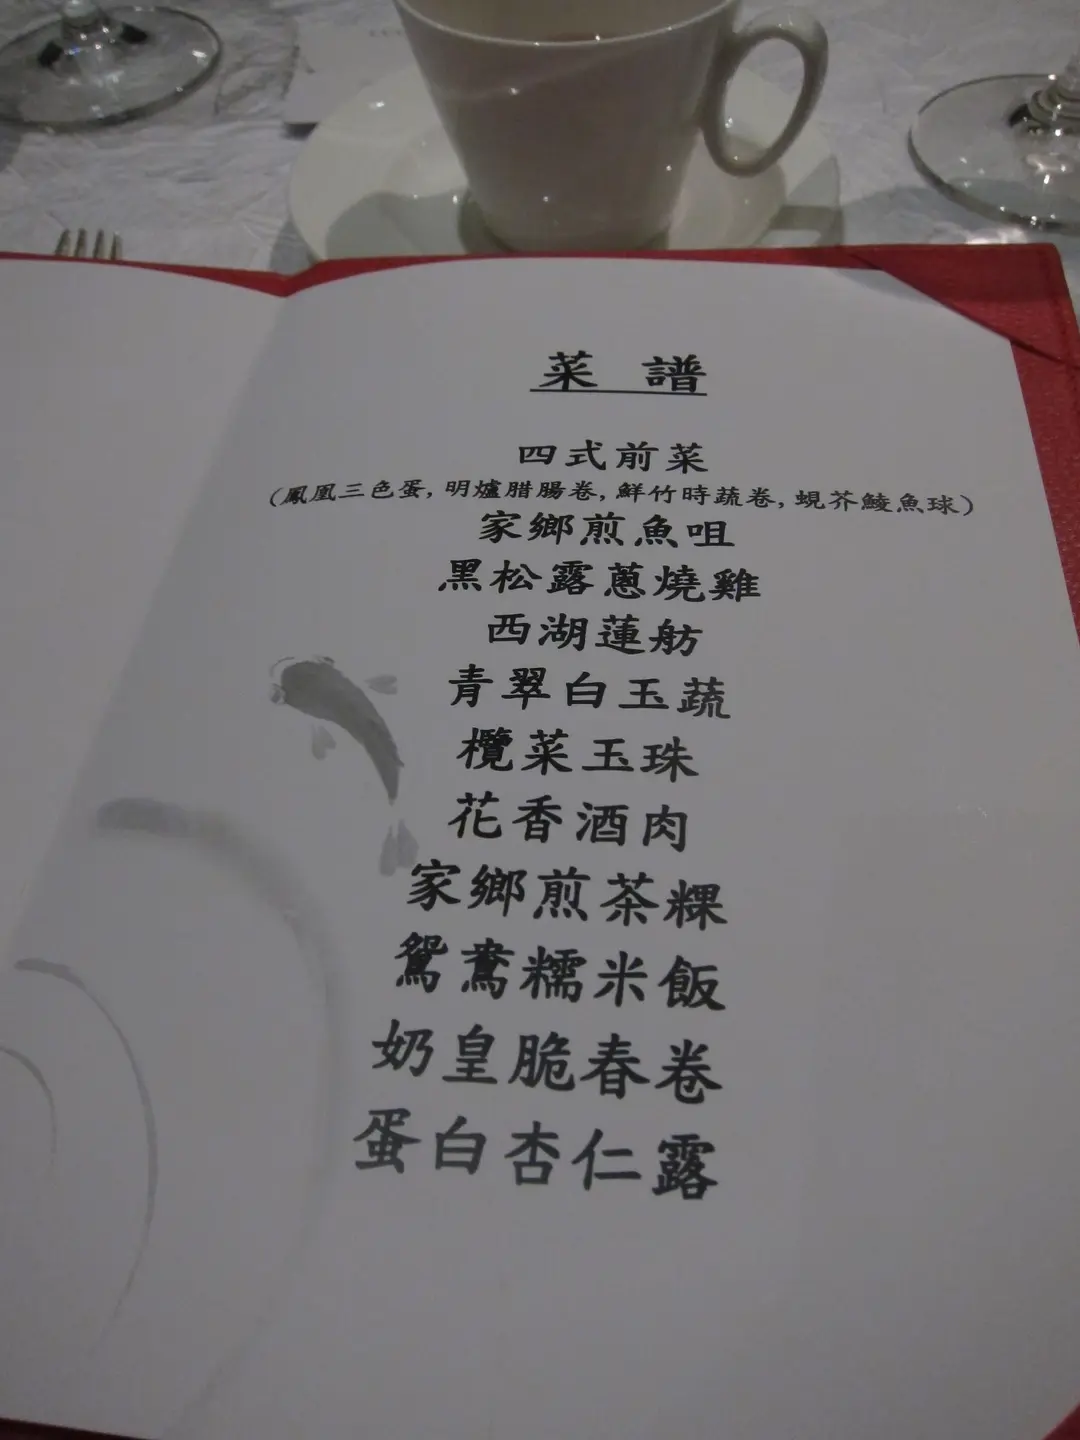 菜 譜
四式前菜
(鳳凰三色蛋, 明爐腊腸卷, 鮮竹時蔬卷, 蜆芥鯪魚球)
家鄉煎魚咀
黑松露蔥燒雞
西湖蓮舫
青翠白玉蔬
欖菜玉珠
花香酒肉
家鄉煎茶粿
鴛鴦糯米飯
奶皇脆春卷
蛋白杏仁露